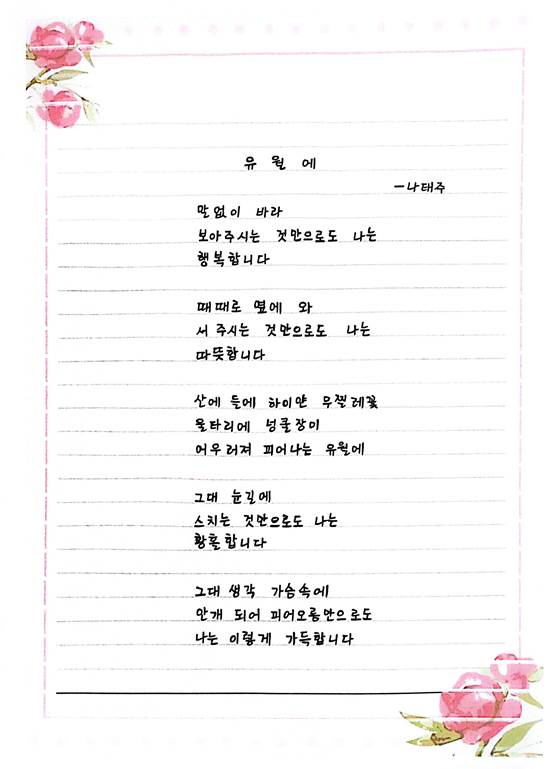 유월에
-나태주
말없이 바라
보아주시는 것만으로도 나는
행복합니다
때때로 옆에 와
서 주시는 것만으로도 나는
따뜻합니다
산에 들에 하이얀 무찔레꽃
울타리에 넝쿨장미
어우러져 피어나는 유월에
그대 눈길에
스치는 것만으로도 나는
황홀합니다
그대 생각 가슴속에
안개 되어 피어오름만으로도
나는 이렇게 가득합니다